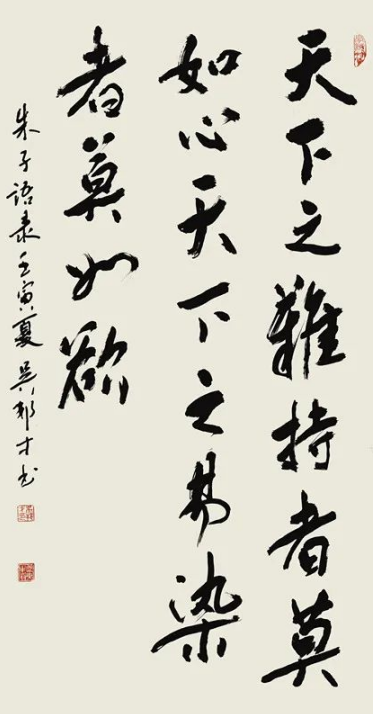 天下之难持者莫
如心天下之易染
者莫如欲
朱子语录壬寅夏吴邦才书